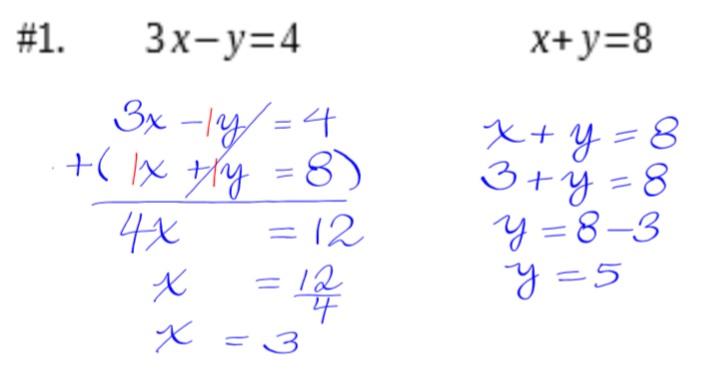 #1. 3x−y=4 x+y=8
3x −1y = 4
+( 1x +1y = 8)
4x = 12
x = 12/4
x = 3
x + y = 8
3 + y = 8
y = 8−3
y = 5